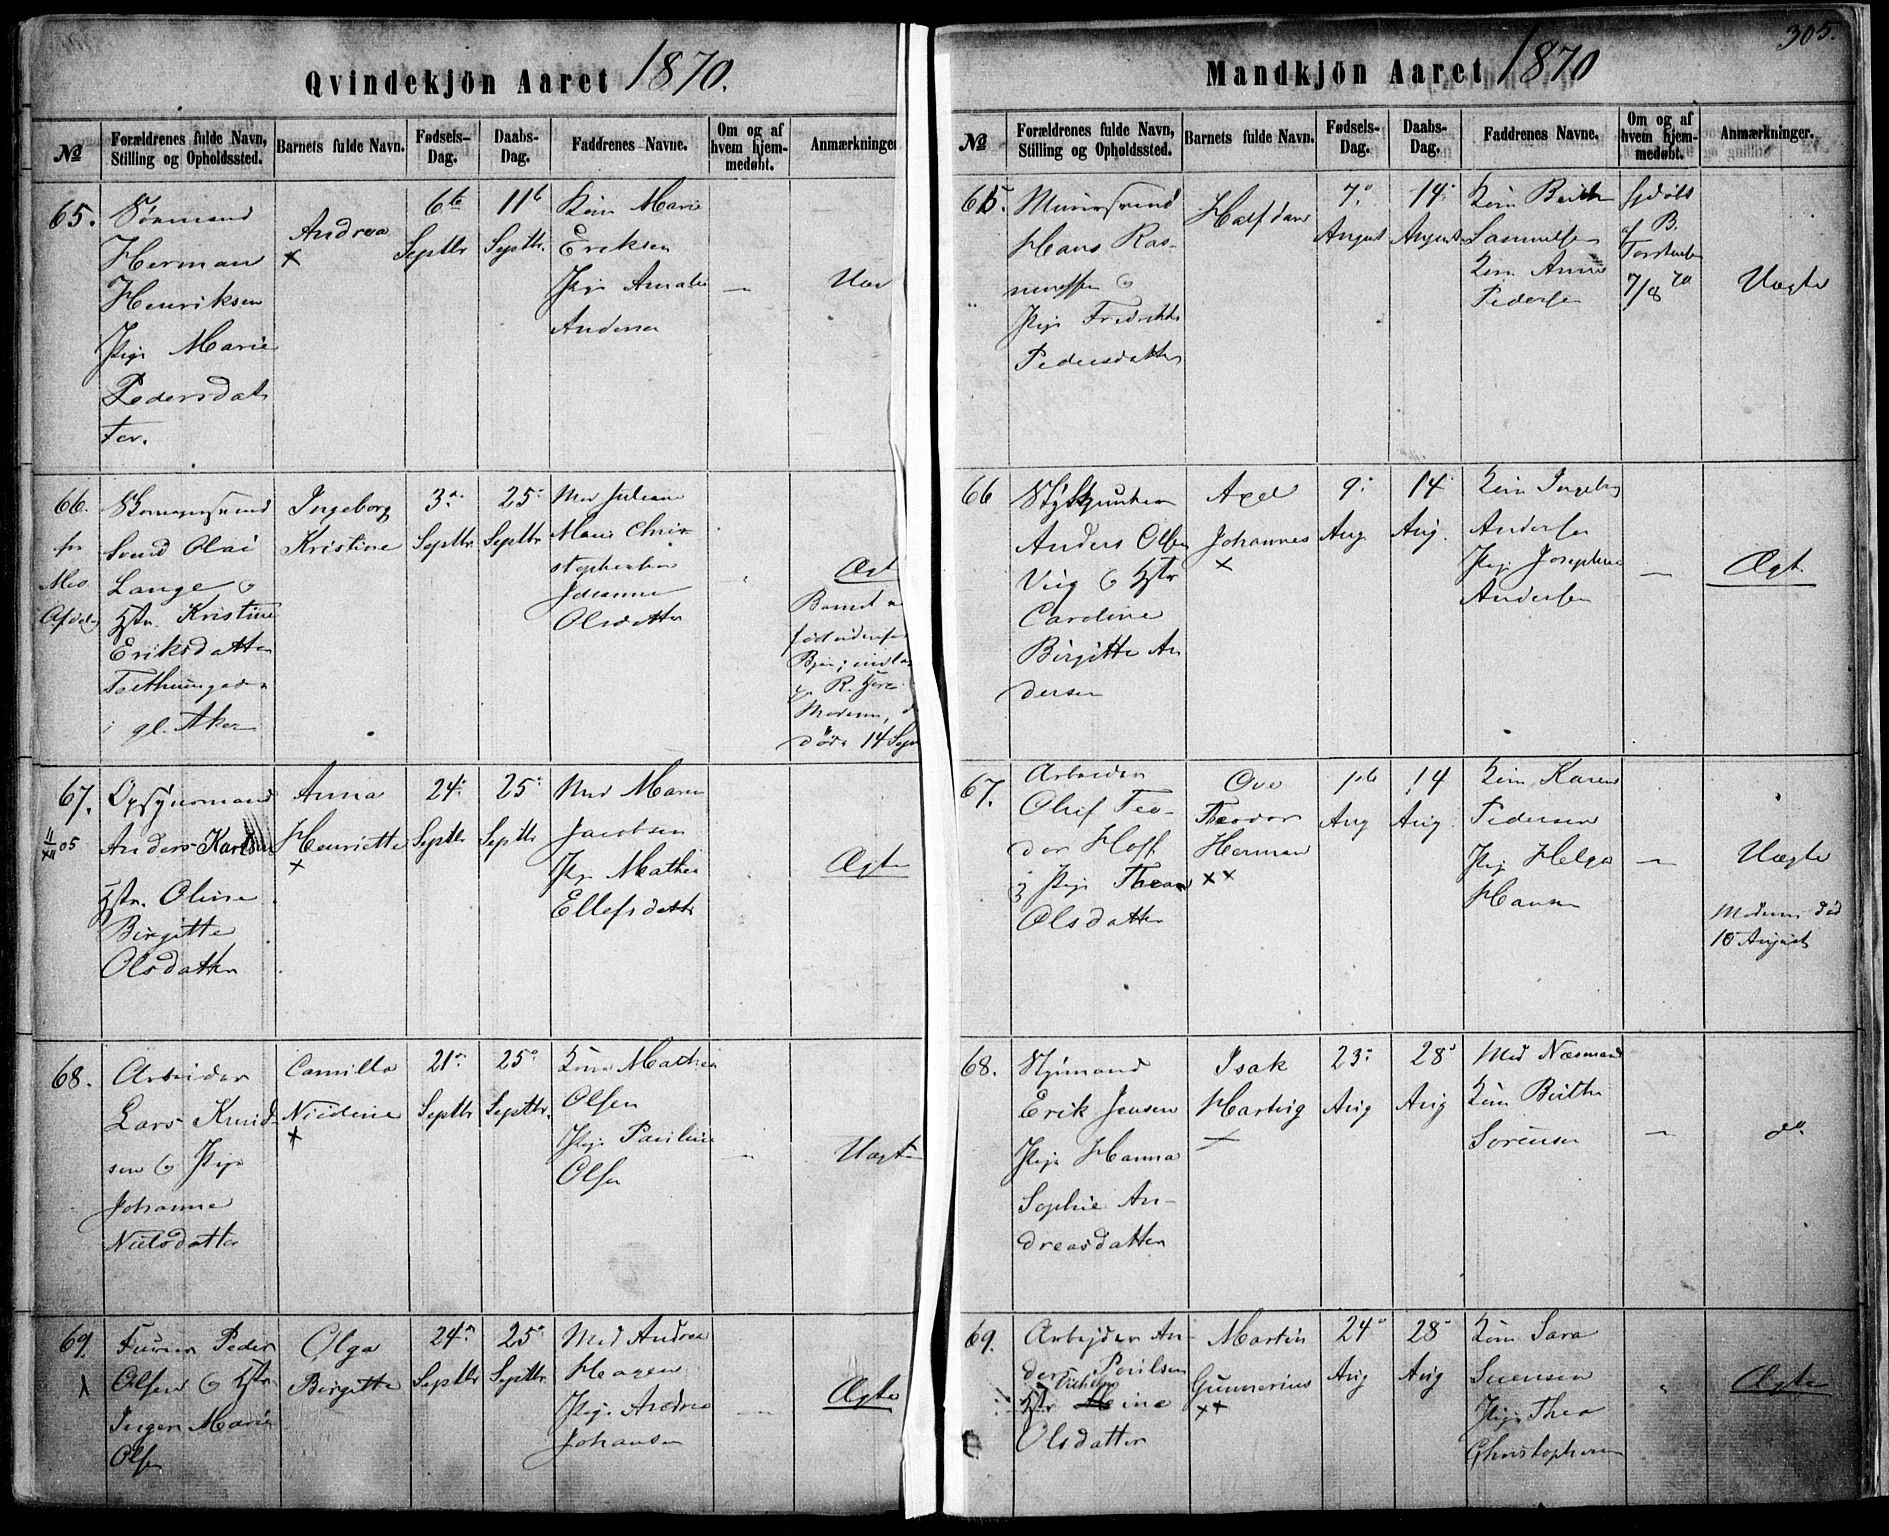 Qvindekjön Aaret 1870.
№
Forældrenes fulde Navn,
Stilling og Opholdssted.
Barnets fulde Navn.
Fødsels-
Dag.
Daabs-
Dag.
Faddrenes Navne.
Om og af
hvem hjem-
medøbt.
Anmærkninger
65.
Sømand
Herman
Henriksen
Pige Marie
Pedersdat
ter.
Andrea
×
6te
Septbr
11te
Septbr.
Kone Marie
Eriksen
Pige Amalie
Andersen
—
Uæ
66.
Svend Olai
Lange &
Hstr. Kristine
Eriksdatter
i gl. Aker
Ingeborg
Kristine
3de
Septbr
25de
Septbr
Mad Juliane
Marie Chri
stophersen
Johanne
Olsdatter
Ægt
Barnet
R. H
Moderen, d
døde 14 Sep
67.
Opsynsmand
Anders Karlsen
Hstr. Oline
Birgitte
Olsdatter
Anna
Henriette
×
24de
Septbr
25de
Septbr
Mad Maren
Jacobsen
Pige Mathea
Ellefsdatter
Ægte
68.
Arbeider
Lars Knud-
sen & Pige
Johanne
Nielsdatter
Camilla
Nicoline
×
21de
Septbr
25de
Septbr.
Kone Mathea
Olsen
Pige Pauline
Olsen
—
Uægte
69.
Peder
Olsen & Hstr.
Inger Marie
Olsen
Olga
Birgitte
24de
Septbr
25de
Septbr.
Mad Andrea
Hagen
Pige Andrea
Johansen
—
Ægte
305.
Mandkjön Aaret 1870
№
Forældrenes fulde Navn,
Stilling og Opholdssted.
Barnets fulde Navn.
Fødsels-
Dag.
Daabs-
Dag.
Faddrenes Navne.
Om og af
hvem hjem-
medøbt.
Anmærkninger.
65
Murersvend
Hans Ras-
mussen &
Pige Fredrikke
Pedersdatter
Halfdan
7de
August
14de
August
Kone Berthe
Samuelsen
Kone Anne
Pedersen
hjdøbt
af B.
Torstensen
7/8 70
Uægte
66
Anders Olsen
Viig & Hstr
Caroline
Birgitte An
dersen
Axel
Johannes
×
9de
Aug
14de
Aug.
Kone Ingeborg
Andersen
Pige Josephine
Andersen
—
Ægt.
67.
Arbeider
Oluf Teo-
dor Hoff
& Pige Thea
Olsdatter
Ove
Theodor
Herman
××
1ste
Aug
14
Aug.
Kone Karen
Pedersen
Pige Helga
Hansen
—
Uægte
Moderen død
10 August
68.
Styrmand
Erik Jensen
Pige Hanna
Sophie An-
dreasdatter
Isak
Hartvig
×
23de
Aug
28de
Aug
Mad Næsmand
Kone Berthe
Sørensen
—
do.
69.
Arbejder An-
ders Poulsen
Hstr Vilhelmine
Olsdatter
Martin
Gunnerius
××
24de
Aug
28de
Aug
Kone Sara
Svensen
Pige Thea
Christophersen
"
Ægte